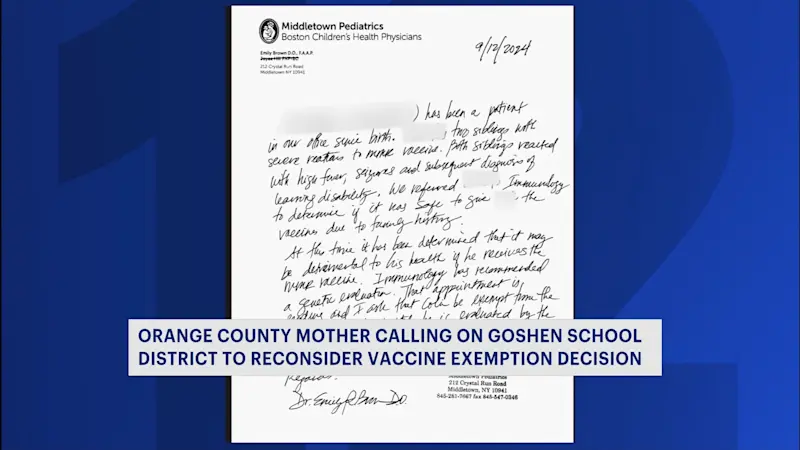 Middletown Pediatrics
Boston Children's Health Physicians
Emily Brown D.O., F.A.A.P.
212 Crystal Run Road
Middletown NY 10941
9/12/2024
) has been a patient
in our office since birth. two siblings with
severe reactions to MMR vaccine. Both siblings reacted
with high fever, seizures and subsequent diagnosis of
learning disability. We referred Immunology
to determine if it was safe to give the
vaccine due to family history.
At this time it has been determined that it may
be detrimental to his health if he receives the
MMR vaccine. Immunology has recommended
a genetic evaluation. That appointment is
and I ask that be exempt from the
he is evaluated by the
ORANGE COUNTY MOTHER CALLING ON GOSHEN SCHOOL
DISTRICT TO RECONSIDER VACCINE EXEMPTION DECISION
Regards.
Dr. Emily R Brown DO
Middletown Pediatrics
212 Crystal Run Road
Middletown, NY 10941